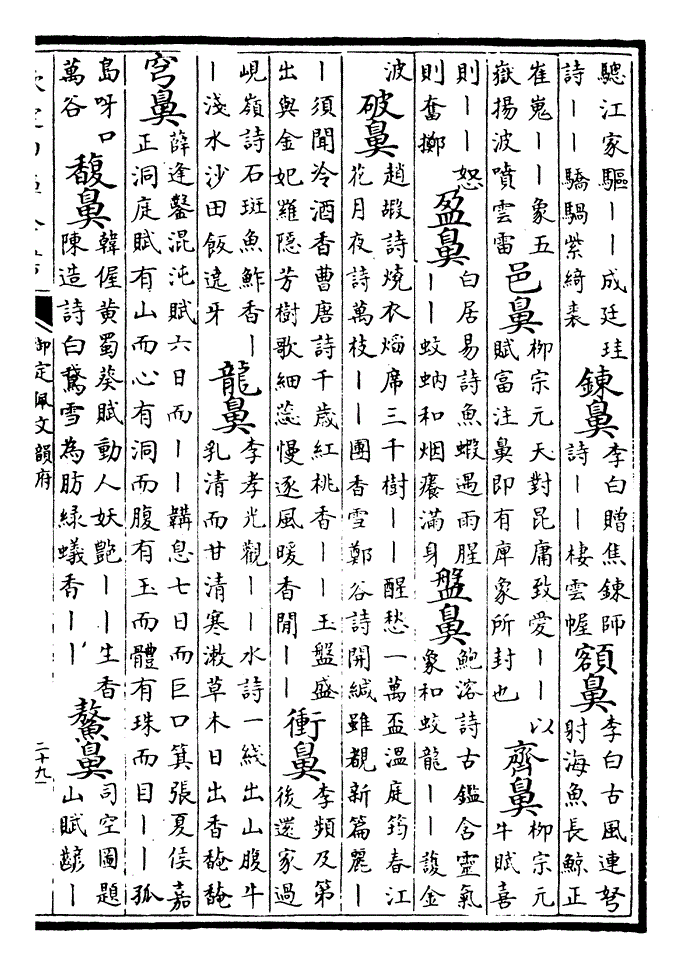 驄江家驅丨丨成廷珪
詩丨丨驕騧紫綺裘
鍊鼻
李白贈焦鍊師
詩丨丨棲雲幄
額鼻
李白古風連弩
射海魚長鯨正
崔嵬丨丨象五
嶽揚波噴雲雷
邑鼻
柳宗元天對昆庸致愛丨丨以
賦富注鼻即有庳象所封也
齊鼻
柳宗元
牛賦喜
則丨丨恕
則奮擲
盈鼻
白居易詩魚蝦遇雨腥
丨丨蚊蚋和烟癢滿身
盤鼻
鮑溶詩古鑑含靈氣
象和蛟龍丨丨護金
波
破鼻
趙嘏詩燒衣焰席三千樹丨丨醒愁一萬盃溫庭筠春江
花月夜詩萬枝丨丨團香雪鄭谷詩開緘雖覩新篇麗丨
丨須聞冷酒香曹唐詩千歲紅桃香丨丨玉盤盛
出與金妃羅隱芳樹歌細蕊慢逐風暖香閒丨丨
衝鼻
李頻及第
後還家過
峴嶺詩石斑魚鮓香丨
丨淺水沙田飯遶牙
龍鼻
李孝光觀丨丨水詩一綫出山腹牛
乳清而甘清寒漱草木日出香馣馣
穹鼻
薛逢鑿混沌賦六日而丨丨鞲息七日而巨口箕張夏侯嘉
正洞庭賦有山而心有洞而腹有玉而體有珠而目丨丨孤
島呀口
萬谷
馥鼻
韓偓黃蜀葵賦動人妖艷丨丨生香
陳造詩白鵞雪為肪綠蟻香丨丨
鰲鼻
司空圖題
山賦齴丨
御定佩文韻府
二十九